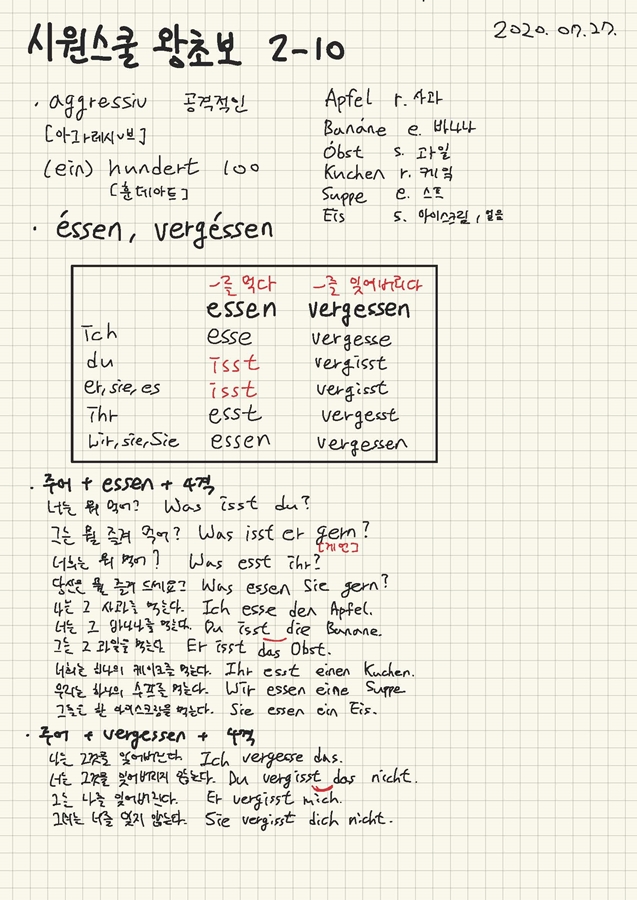 시원스쿨 왕초보 2-10
2020. 07. 27.
· aggressiv 공격적인
[아그레시ㅂ브]
(ein) hundert 100
[훈데아트]
Apfel r. 사과
Banáne e. 바나나
Óbst s. 과일
Kuchen r. 케익
Suppe e. 스프
Eis s. 아이스크림, 얼음
· éssen, vergéssen
~를 먹다 ~를 잊어버리다
essen vergessen
ich esse vergesse
du isst vergisst
er, sie, es isst vergisst
ihr esst vergesst
wir, sie, Sie essen vergessen
· 주어 + essen + 4격
너는 뭐 먹어? Was isst du?
그는 뭘 즐겨 먹어? Was isst er gern?
[게언]
너희는 뭐 먹어? Was esst ihr?
당신은 뭘 즐겨 드세요? Was essen Sie gern?
나는 그 사과를 먹는다. Ich esse den Apfel.
너는 그 바나나를 먹는다. Du isst die Banane.
그는 그 과일을 먹는다 Er isst das Obst.
너희는 하나의 케이크를 먹는다. Ihr esst einen Kuchen.
우리는 하나의 수프를 먹는다. Wir essen eine Suppe
그들은 한 아이스크림을 먹는다. Sie essen ein Eis.
· 주어 + vergessen + 4격
나는 그것을 잊어버린다. Ich vergesse das.
너는 그것을 잊어버리지 않는다. Du vergisst das nicht.
그는 나를 잊어버린다. Er vergisst mich.
그녀는 너를 잊지 않는다. Sie vergisst dich nicht.